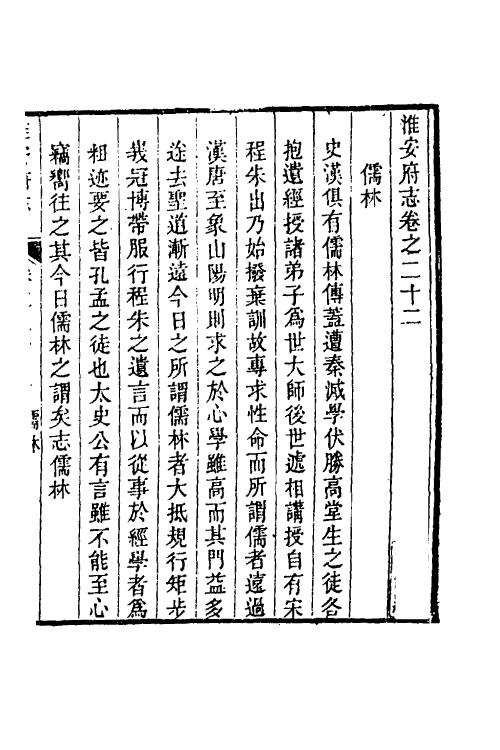 淮安府志卷之二十二
儒林
史漢俱有儒林傳蓋遭秦滅學伏勝高堂生之徒各
抱遺經授諸弟子爲世大師後世遞相講授自有宋
程朱出乃始撥棄訓故專求性命而所謂儒者遠過
漢唐至象山陽明則求之於心學雖高而其門益多
迕去聖道漸遠今日之所謂儒林者大抵規行矩步
峩冠博帶服行程朱之遺言而以從事於經學者爲
粗迹要之皆孔孟之徒也太史公有言雖不能至心
竊嚮往之其今日儒林之謂矣志儒林
儒林